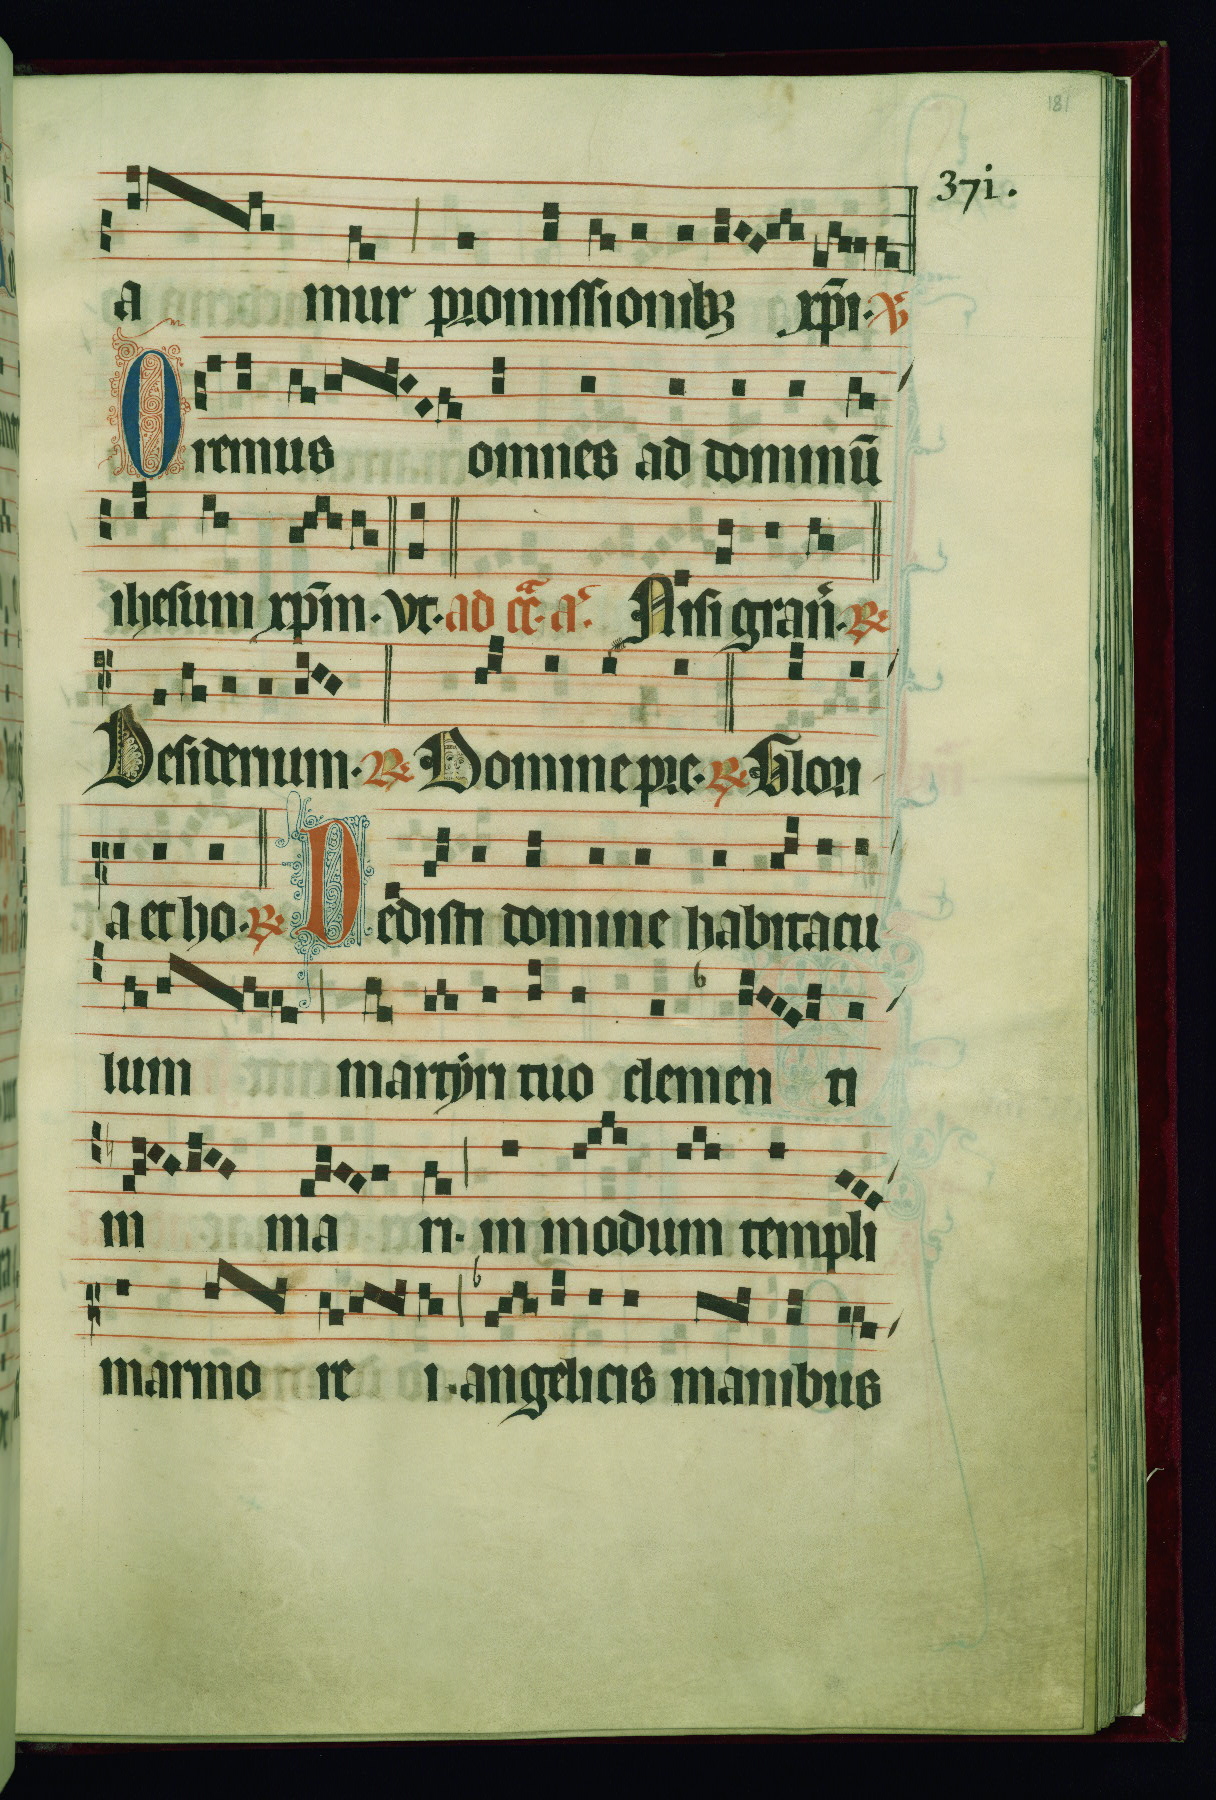 181
37i.
a mur promissionibꝫ xp̄i. ℣
Oremus omnes ad dominū
ihesum xp̄m. vt. ad cc̄. a. Nisi gran̄. ℞
Desiderium. ℞ Domine pre. ℞ Glori
a et ho. ℞ Dedisti domine habitacu
lum martÿri tuo clemen ti
in ma ri. in modum templi
marmo re i. angelicis manibus